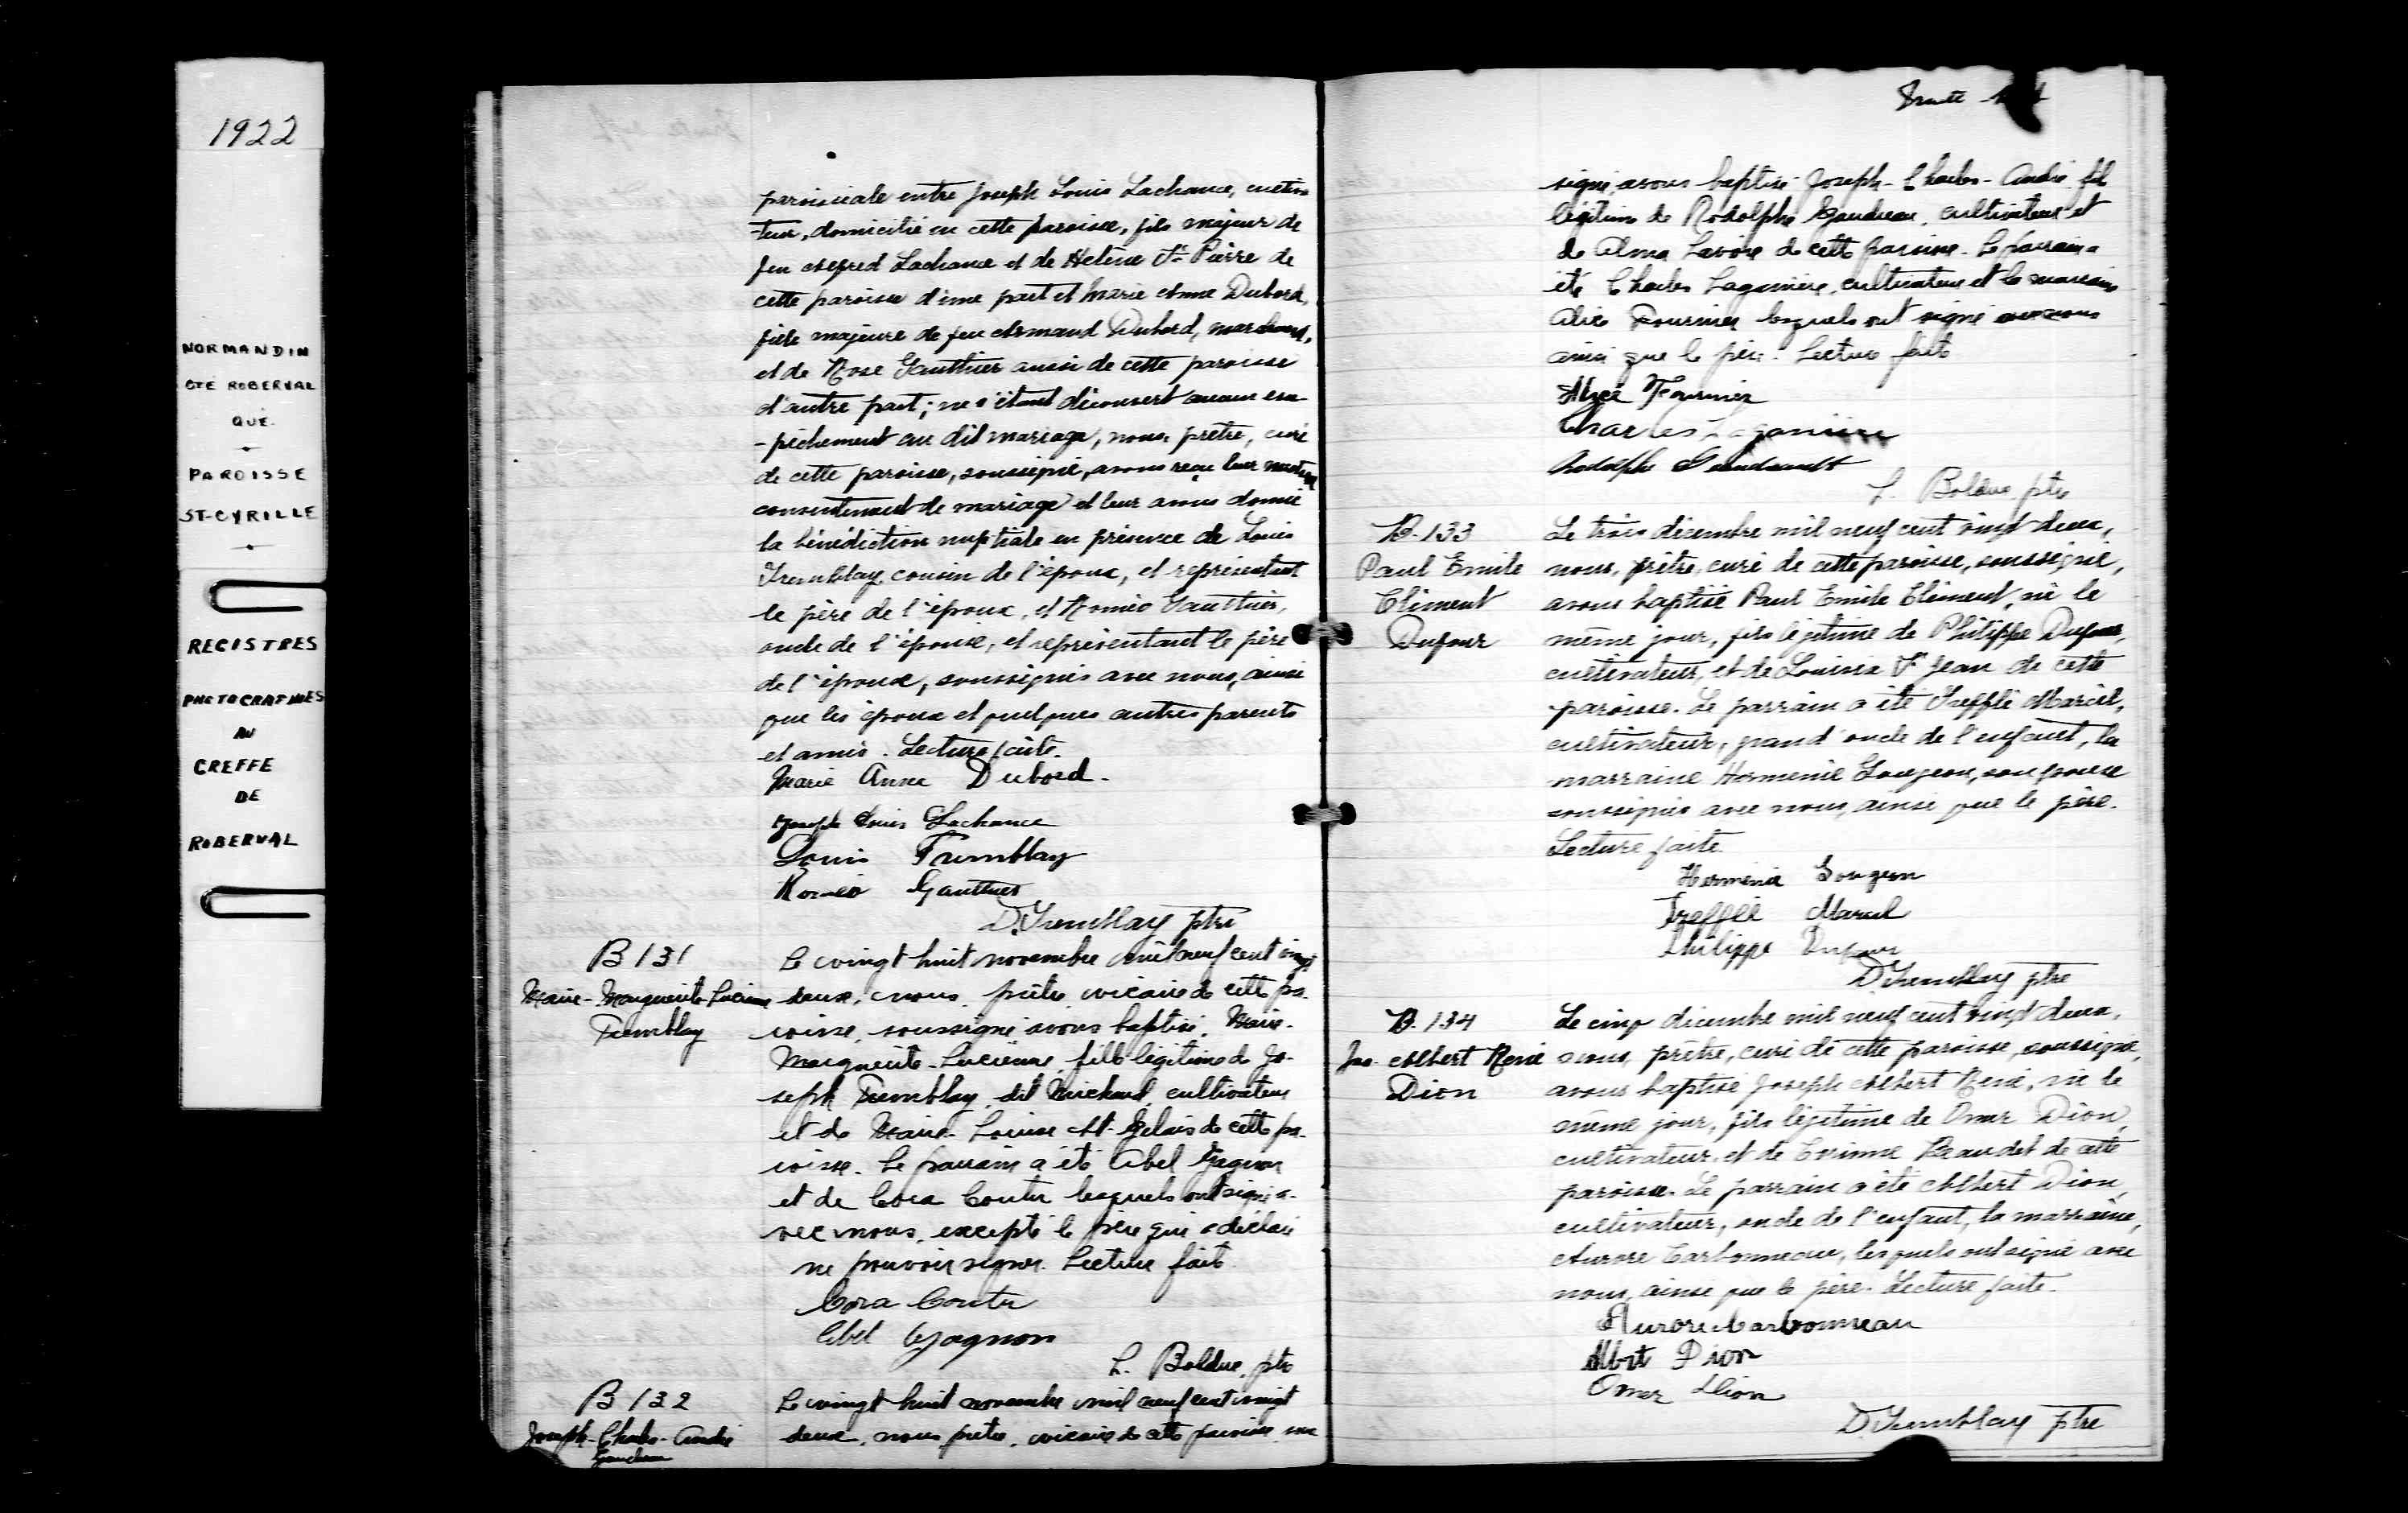 1922
NORMANDIN
CTÉ ROBERVAL
QUÉ.
PAROISSE
ST-CYRILLE
REGISTRES
PHOTOGRAPHIÉS
AU
GREFFE
DE
ROBERVAL
paroissiale entre Joseph Louis Lachance, cultiva
-teur, domicilié en cette paroisse, fils majeur de
feu Alfred Lachance et de Hélène St Pierre de
cette paroisse d'une part et Marie Anne Dubord,
fille majeure de feu Armand Dubord, marchand,
et de Rose Gauthier aussi de cette paroisse
d'autre part; ne s'étant découvert aucun em
-pêchement au dit mariage, nous, prêtre, curé
de cette paroisse, soussigné, avons reçu leur mutuel
consentement de mariage et leur avons donné
la bénédiction nuptiale en présence de Louis
Tremblay, cousin de l'époux, et représentant
le père de l'époux, et Roméo Gauthier,
oncle de l'épouse, et représentant le père
de l'épouse, soussignés avec nous, ainsi
que les époux et quelques autres parents
et amis. Lecture faite.
Marie Anna Dubord.
Joseph Louis Lachance
Louis Tremblay
Roméo Gauthier
D. Tremblay ptre
B 131
Marie-Marguerite-Lucienne
Tremblay
Le vingt huit novembre mil neuf cent vingt
deux, nous, prêtre, vicaire de cette pa-
roisse, soussigné avons baptisé, Marie-
Marguerite-Lucienne, fille légitime de Jo-
seph Tremblay, dit Michaud, cultivateur
et de Marie-Louise St-Gelais de cette pa-
roisse. Le parrain a été Abel Gagnon
et de Cora Coutu lesquels ont signé a-
vec nous, excepté le père qui a déclaré
ne pouvoir signer. Lecture faite
Cora Coutu
Abel Gagnon
L. Bolduc, ptre
B 132
Joseph-Charles-André
Gaudreau
Le vingt huit novembre mil neuf cent vingt
deux, nous, prêtre, vicaire de cette paroisse, sous
Trente
signé, avons baptisé Joseph-Charles-André fils
légitime de Rodolphe Gaudreau, cultivateur et
de Alma Lavoie de cette paroisse. Le parrain a
été Charles Laganière, cultivateur et la marraine
Alice Fournier lesquels ont signé avec nous
ainsi que le père. Lecture faite
Alice Fournier
Charles Laganière
Rodolphe Gaudreault
L. Bolduc ptre
B-133
Paul Emile
Clément
Dufour
Le trois décembre mil neuf cent vingt deux,
nous, prêtre, curé de cette paroisse, soussigné,
avons baptisé Paul Emile Clément, né le
même jour, fils légitime de Philippe Dufour,
cultivateur, et de Louisia St Jean de cette
paroisse. Le parrain a été Trefflé Marcil,
cultivateur, grand'oncle de l'enfant, la
marraine Herménie Gougeon, son épouse
soussignés avec nous, ainsi que le père.
Lecture faite.
Herménie Gougeon
Trefflé Marcil
Philippe Dufour
D. Tremblay ptre
B. 134
Jos. Albert René
Dion
Le cinq décembre mil neuf cent vingt deux,
nous, prêtre, curé de cette paroisse, soussigné,
avons baptisé Joseph Albert René, né le
même jour, fils légitime de Omer Dion,
cultivateur, et de Corinne Beaudet de cette
paroisse. Le parrain a été Albert Dion,
cultivateur, oncle de l'enfant, la marraine,
Aurore Carbonneau, lesquels ont signé avec
nous, ainsi que le père. Lecture faite.
Aurore Carbonneau
Albert Dion
Omer Dion
D. Tremblay ptre